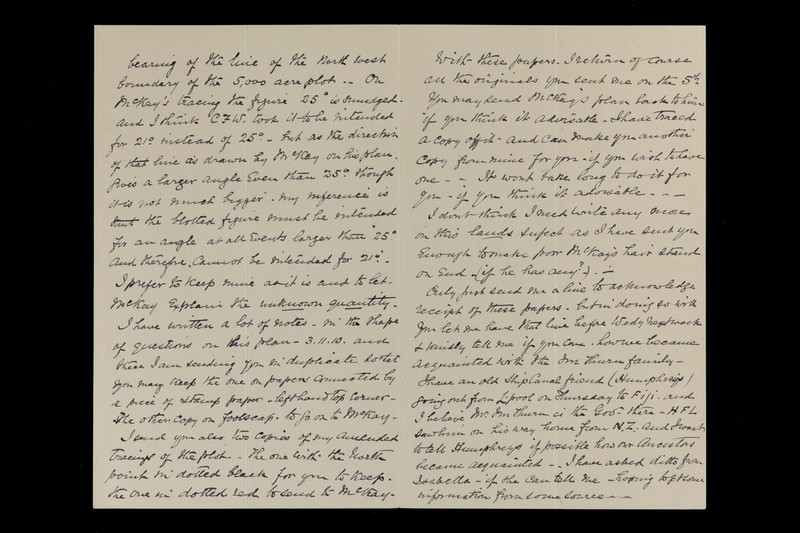 bearing of the line of the North West
boundary of the 5,000 acre plot -- On
McKay's tracing the figure 25° is smudged -
and I think C.F.W. took it to be intended
for 21° instead of 25° - but as the direction
of that line as drawn by McKay on his plan.
gives a larger angle even than 25° though
it is not much bigger - my inference is
that the blotted figure must be intended
for an angle at all events larger than 25°
and therefore cannot be intended for 21° -
I prefer to keep mine as it is and to let
McKay explain the unknown quantity -
I have written a lot of notes - in the shape
of questions on this plan - 3.11.10. and
these I am sending you in duplicate so that
you may keep the one on papers connected by
a piece of stamp paper - left hand top corner -
The other copy on foolscap - to go on to McKay -
I send you also two copies of my amended
tracings of the plot - The one with the North
point in dotted black for you to keep -
the one in dotted red to send to McKay -
with these papers. I return of course
all the originals you sent me on the 5th.
You may send McKay's plan back to him
if you think it advisable - I have traced
a copy of it - and can make you another
copy from mine for you - if you wish to have
one - - It won't take long to do it for
you - if you think it advisable - - -
I don't think I need write any more
on this lands subject as I have sent you
enough to make poor McKay's hair stand
on end - (if he has any?) . -
Only just send me a line to acknowledge
receipt of these papers - but in doing so will
you let me have that line before Wedy next week
& kindly tell me if you can - how we became
acquainted with the Im Thurn family -
I have an old Ship Canal friend (Humphreys)
going out from L'pool on Thursday to Fiji - and
I believe Mr. Im Thurn is the Govr there - H F L
saw him on his way home from N.Z. and I want
to tell Humphreys if possible how our ancestors
became acquainted - - I have asked ditto from
Isabella - if she can tell me - hoping to get some
information from some source - -